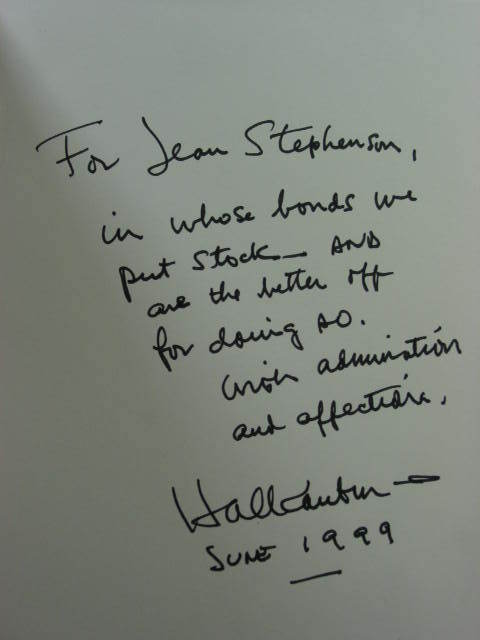 For Jean Stephenson,
in whose bonds we
put stock — AND
are the better off
for doing so.
With admiration
and affection,
JUNE 1999